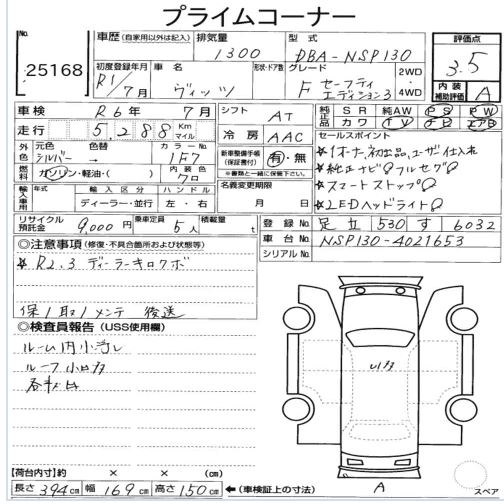 プライムコーナー
No.
25168
車歴 (自家用以外は記入)
排気量
1300
型式
DBA-NSP130
評価点
3.5
初度登録年月
R1/7月
車名
ヴィッツ
形状・ドア数
グレード
F セーフティエディション3
2WD
4WD
内装補助評価
A
車検
R6年 7月
シフト
AT
純正品
SR 純AW PS PW
カワ TV ナビ エアB
走行
5,288
Km
マイル
冷房
AAC
セールスポイント
外色
元色
シルバー
色替
→
カラーNo.
1F7
新車整備手帳(保証書付)
有・無
☆1オーナー、初出品、ユーザー仕入れ
燃料
ガソリン・軽油・( )
内装色
クロ
※記録簿と一緒に保管して下さい。
☆純正ナビ フルセグ
輸入車用
年式
輸入区分
ディーラー・並行
ハンドル
左・右
名義変更期限
月 日
☆スマートストップ
☆LEDヘッドライト
リサイクル預託金
9,000円
乗車定員
5人
積載量
t
登録No.
足立 530 す 6032
車台No.
NSP130-4021653
シリアルNo.
◎注意事項(修復・不具合箇所および状態等)
☆ R2.3 ディーラーキロクボ
保1取1メンテ 後送
◎検査員報告(USS使用欄)
ルーム内小ヨゴレ
ルーフ小口カ
各キズ
【荷台内寸】約 × × (cm)
長さ 394cm 幅 169cm 高さ 150cm
←(車検証上の寸法)
A
スペア